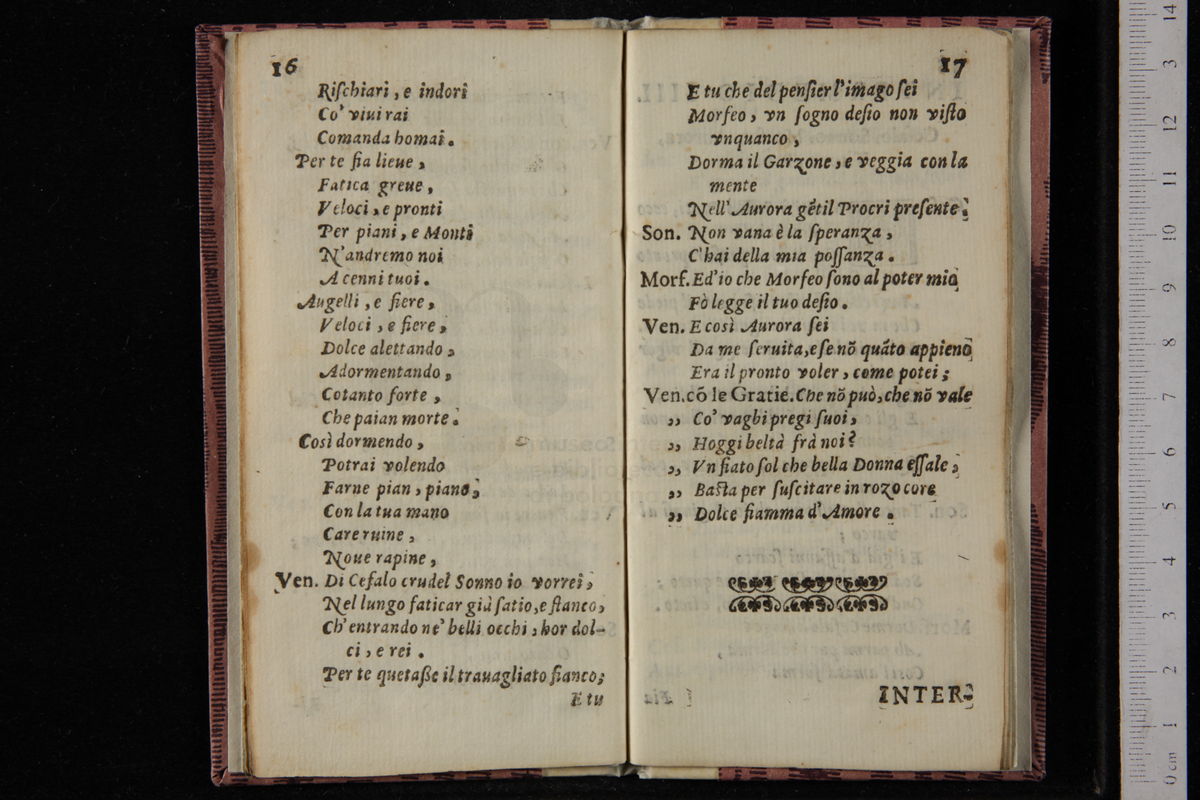 16
Riſchiari, e indori
Co' viui rai
Comanda homai.
Per te fia lieue,
Fatica greue,
Veloci, e pronti
Per piani, e Monti
N'andremo noi
A cenni tuoi.
Augelli, e fiere,
Veloci, e fiere,
Dolce alettando,
Adormentando,
Cotanto forte,
Che paian morte.
Così dormendo,
Potrai volendo
Farne pian, piano,
Con la tua mano
Care ruine,
Noue rapine,
Ven. Di Cefalo crudel Sonno io vorrei,
Nel lungo faticar già ſatio, e ſtanco,
Ch'entrando ne' belli occhi, hor dol-
ci, e rei.
Per te quetaße il trauagliato fianco;
E tu
17
E tu che del penſier l'imago ſei
Morfeo, vn ſogno deſio non viſto
vnquanco,
Dorma il Garzone, e veggia con la
mente
Nell' Aurora gẽtil Procri preſente.
Son. Non vana è la ſperanza,
C'hai della mia poſſanza.
Morf. Ed'io che Morfeo ſono al poter mio
Fò legge il tuo deſio.
Ven. E così Aurora ſei
Da me ſeruita, e ſe nõ quãto appieno
Era il pronto voler, come potei;
Ven. cõ le Gratie. Che nõ può, che nõ vale
„ Co' vaghi pregi ſuoi,
„ Hoggi beltà frà noi?
„ Vn fiato ſol che bella Donna eſſale,
„ Baſta per ſuſcitare in rozo core
„ Dolce fiamma d'Amore.
INTER-
0 cm 1 2 3 4 5 6 7 8 9 10 11 12 3 14